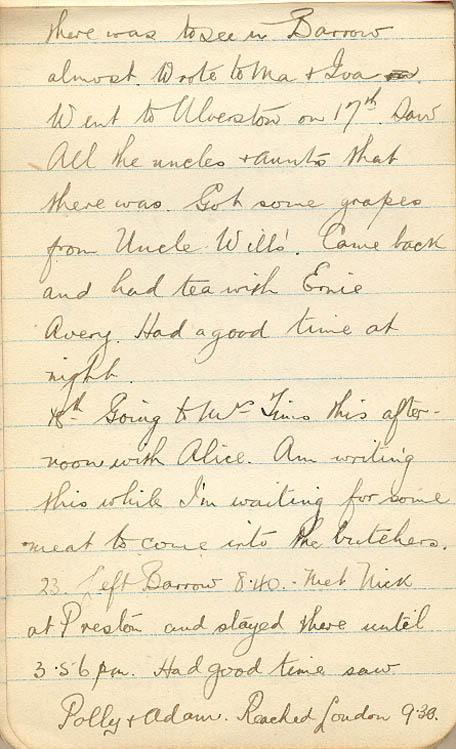 there was to see in Barrow
almost. Wrote to Ma & Iva
Went to Ulverston on 17th. Saw
All the uncles & aunts that
there was. Got some grapes
from Uncle Wills'. Came back
and had tea with Ernie
Avery. Had a good time at
night.
18th Going to Mrs Tims this after-
noon with Alice. Am writing
this while I'm waiting for some
meat to come into the butchers.
23 Left Barrow 8.40. Met Nick
at Preston and stayed there until
3.56 pm. Had good time saw
Polly & Adam. Reached London 9.30.